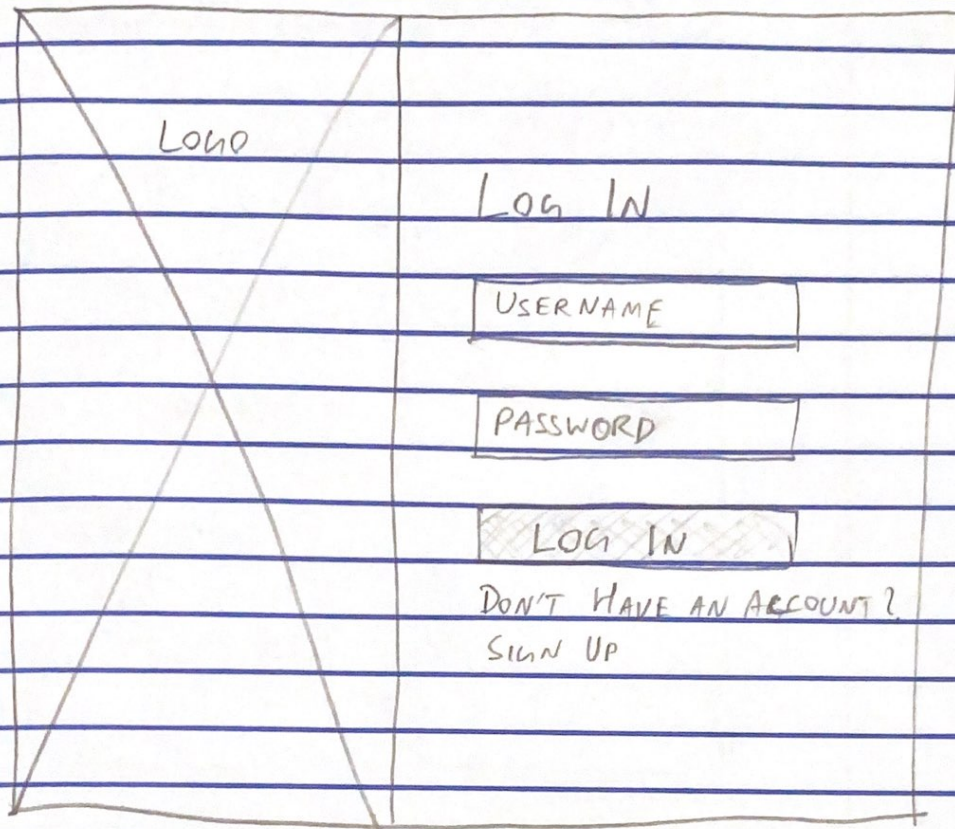 LOGO
LOG IN
USERNAME
PASSWORD
LOG IN
DON'T HAVE AN ACCOUNT?
SIGN UP